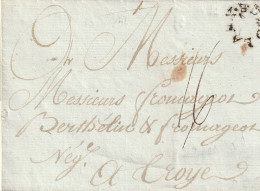 Messieurs
Messieurs fromageot
Berthelin & fromageot
Neg.^t
A Troyes